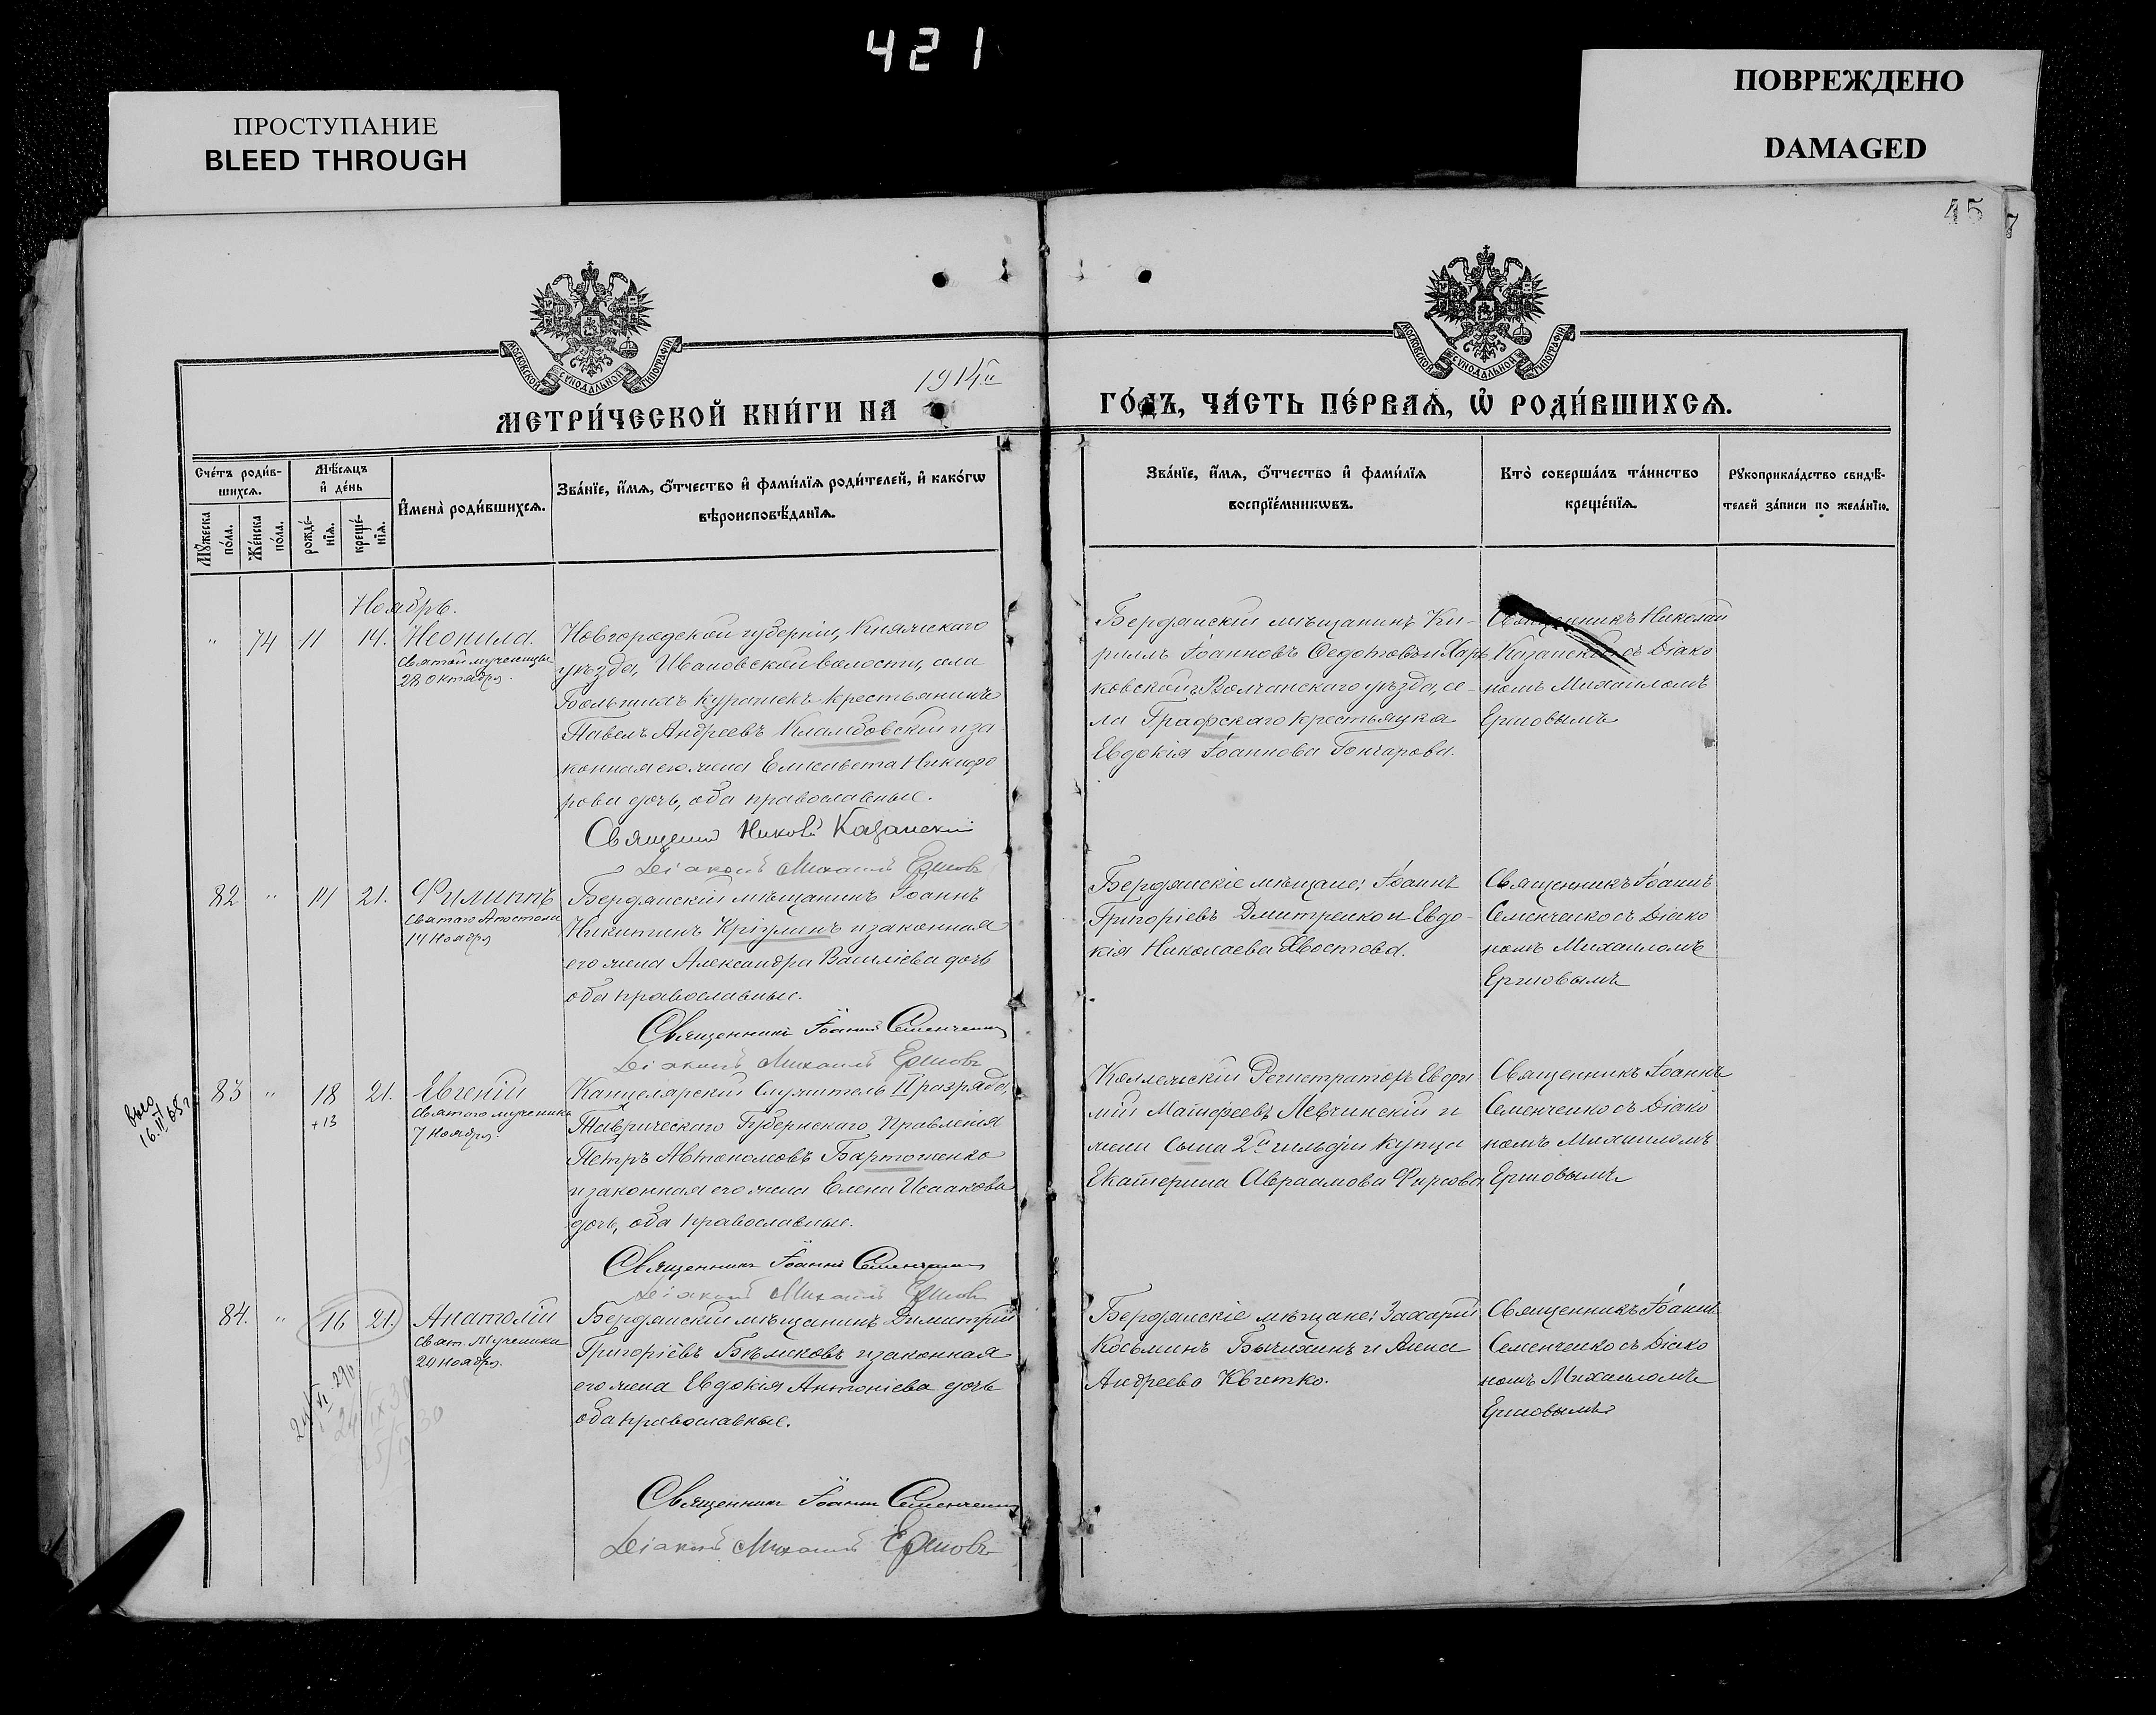 421
ПРОСТУПАНИЕ
BLEED THROUGH
ПОВРЕЖДЕНО
DAMAGED
45
7
МОСКОВСКОЙ СѴНОДАЛЬНОЙ ТИПОГРАФІИ
МОСКОВСКОЙ СѴНОДАЛЬНОЙ ТИПОГРАФІИ
МЕТРИ́ЧЕСКОЙ КНИ́ГИ НА 1914й ГО́ДЪ, ЧА́СТЬ ПЕ́РВАѦ, Ѡ҆ РОДИ́ВШИХСѦ.
Сче́тъ роди́в-
шихсѧ.
Мꙋ́жеска по́ла.
Же́нска по́ла.
Мѣ́сѧцъ
и҆ де́нь
рожде́-
нїѧ.
креще́-
нїѧ.
И҆мена̀ роди́вшихсѧ.
Зва́нїе, и҆́мѧ, ѻ҆́тчество и҆ фами́лїѧ роди́телей, и҆ како́гѡ
вѣроисповѣ́данїѧ.
Зва́нїе, и҆́мѧ, ѻ҆́тчество и҆ фами́лїѧ
воспрїе́мникѡвъ.
Кто̀ соверша́лъ та́инство
креще́нїѧ.
Рꙋкоприкла́дство свидѣ́-
телей за́писи по жела́нїю.
Ноябрь.
" 74 11 14. Неонила.
Святой мученицы
28 октября.
Новгородской губерніи,
уѣзда, Ивановской волости, села
крестьянинъ
Павелъ Андреевъ и за
конная его жена Елисавета Никифо
рова дочь, оба православные.
Казанскій
Діаконъ Михаилъ Ершовъ
Бердянскій мѣщанинъ Ки-
риллъ Іоанновъ Ѳедотовъ и Харь
ковской г. Волчанскаго уѣзда, се-
ла Графскаго крестьянка
Евдокія Іоаннова Гончарова.
Священникъ Николай
Казанскій съ Діако
номъ Михаиломъ
Ершовымъ
82 " 14 21. Филиппъ
Святаго Апостола
14 Ноября
Бердянскій мѣщанинъ Іоаннъ
Никитинъ и законная
его жена Александра Василіева дочь
оба православные.
Священникъ Іоаннъ Семенченко
Діаконъ Михаилъ Ершовъ
Бердянскіе мѣщане: Іоаннъ
Григоріевъ Дмитренко и Евдо-
кія Николаева Хвостова.
Священникъ Іоаннъ
Семенченко съ Діако
номъ Михаиломъ
Ершовымъ
83 " 18 21. Евгеній
+13
Святого мученика
7 Ноября.
Канцелярскій Служитель II разряда,
Таврическаго Губернскаго Правленія
Петръ Автономовъ
и законная его жена Елена Исаакова
дочь, оба православные.
Священникъ Іоаннъ Семенченко
Діаконъ Михаилъ Ершовъ
Коллежскій Регистраторъ Евѳи
мій Матѳеевъ Левчинскій и
жена сына 2й гильдіи купца
Екатерина Авраамова Фирсова
Священникъ Іоаннъ
Семенченко съ Діако
номъ Михаиломъ
Ершовымъ
84. " 16 21. Анатолій
Свят. Мученика
20 Ноября.
Бердянскій мѣщанинъ Димитрій
Григоріевъ Бѣликовъ и законная
его жена Евдокія Антоніева дочь
оба православные.
Священникъ Іоаннъ Семенченко
Діаконъ Михаилъ Ершовъ
Бердянскіе мѣщане: Захарій
Косьминъ и Анна
Андреева Квитко.
Священникъ Іоаннъ
Семенченко съ Діако
номъ Михаиломъ
Ершовымъ